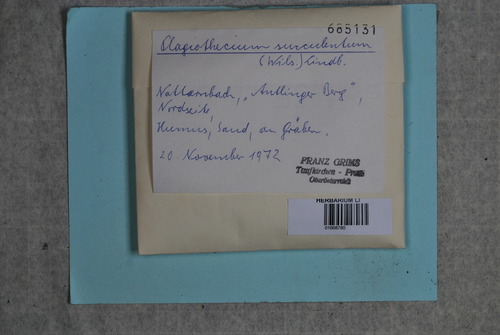 665131
Plagiothecium succulentum
(Wils.) Lindb.
Natternbach, „Antlinger Berg",
Nordseite,
Humus, Sand, an Gräben.
20. November 1972
FRANZ GRIMS
Taufkirchen - Pram
Oberösterreich
HERBARIUM LI